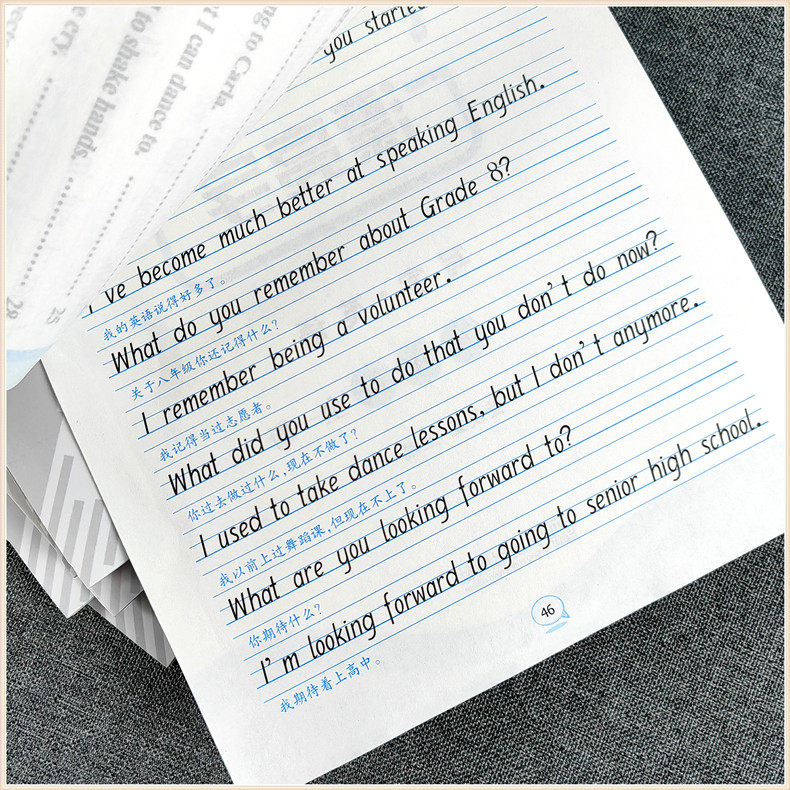 ng to Carla.
t I can dance to.
to shake hands.
e cry.
25
28
you started
I've become much better at speaking English.
我的英语说得好多了。
What do you remember about Grade 8?
关于八年级你还记得什么?
I remember being a volunteer.
我记得当过志愿者。
What did you use to do that you don't do now?
你过去做过什么,现在不做了?
I used to take dance lessons, but I don't anymore.
我以前上过舞蹈课,但现在不上了。
What are you looking forward to?
你期待什么?
I'm looking forward to going to senior high school.
我期待着上高中。
46